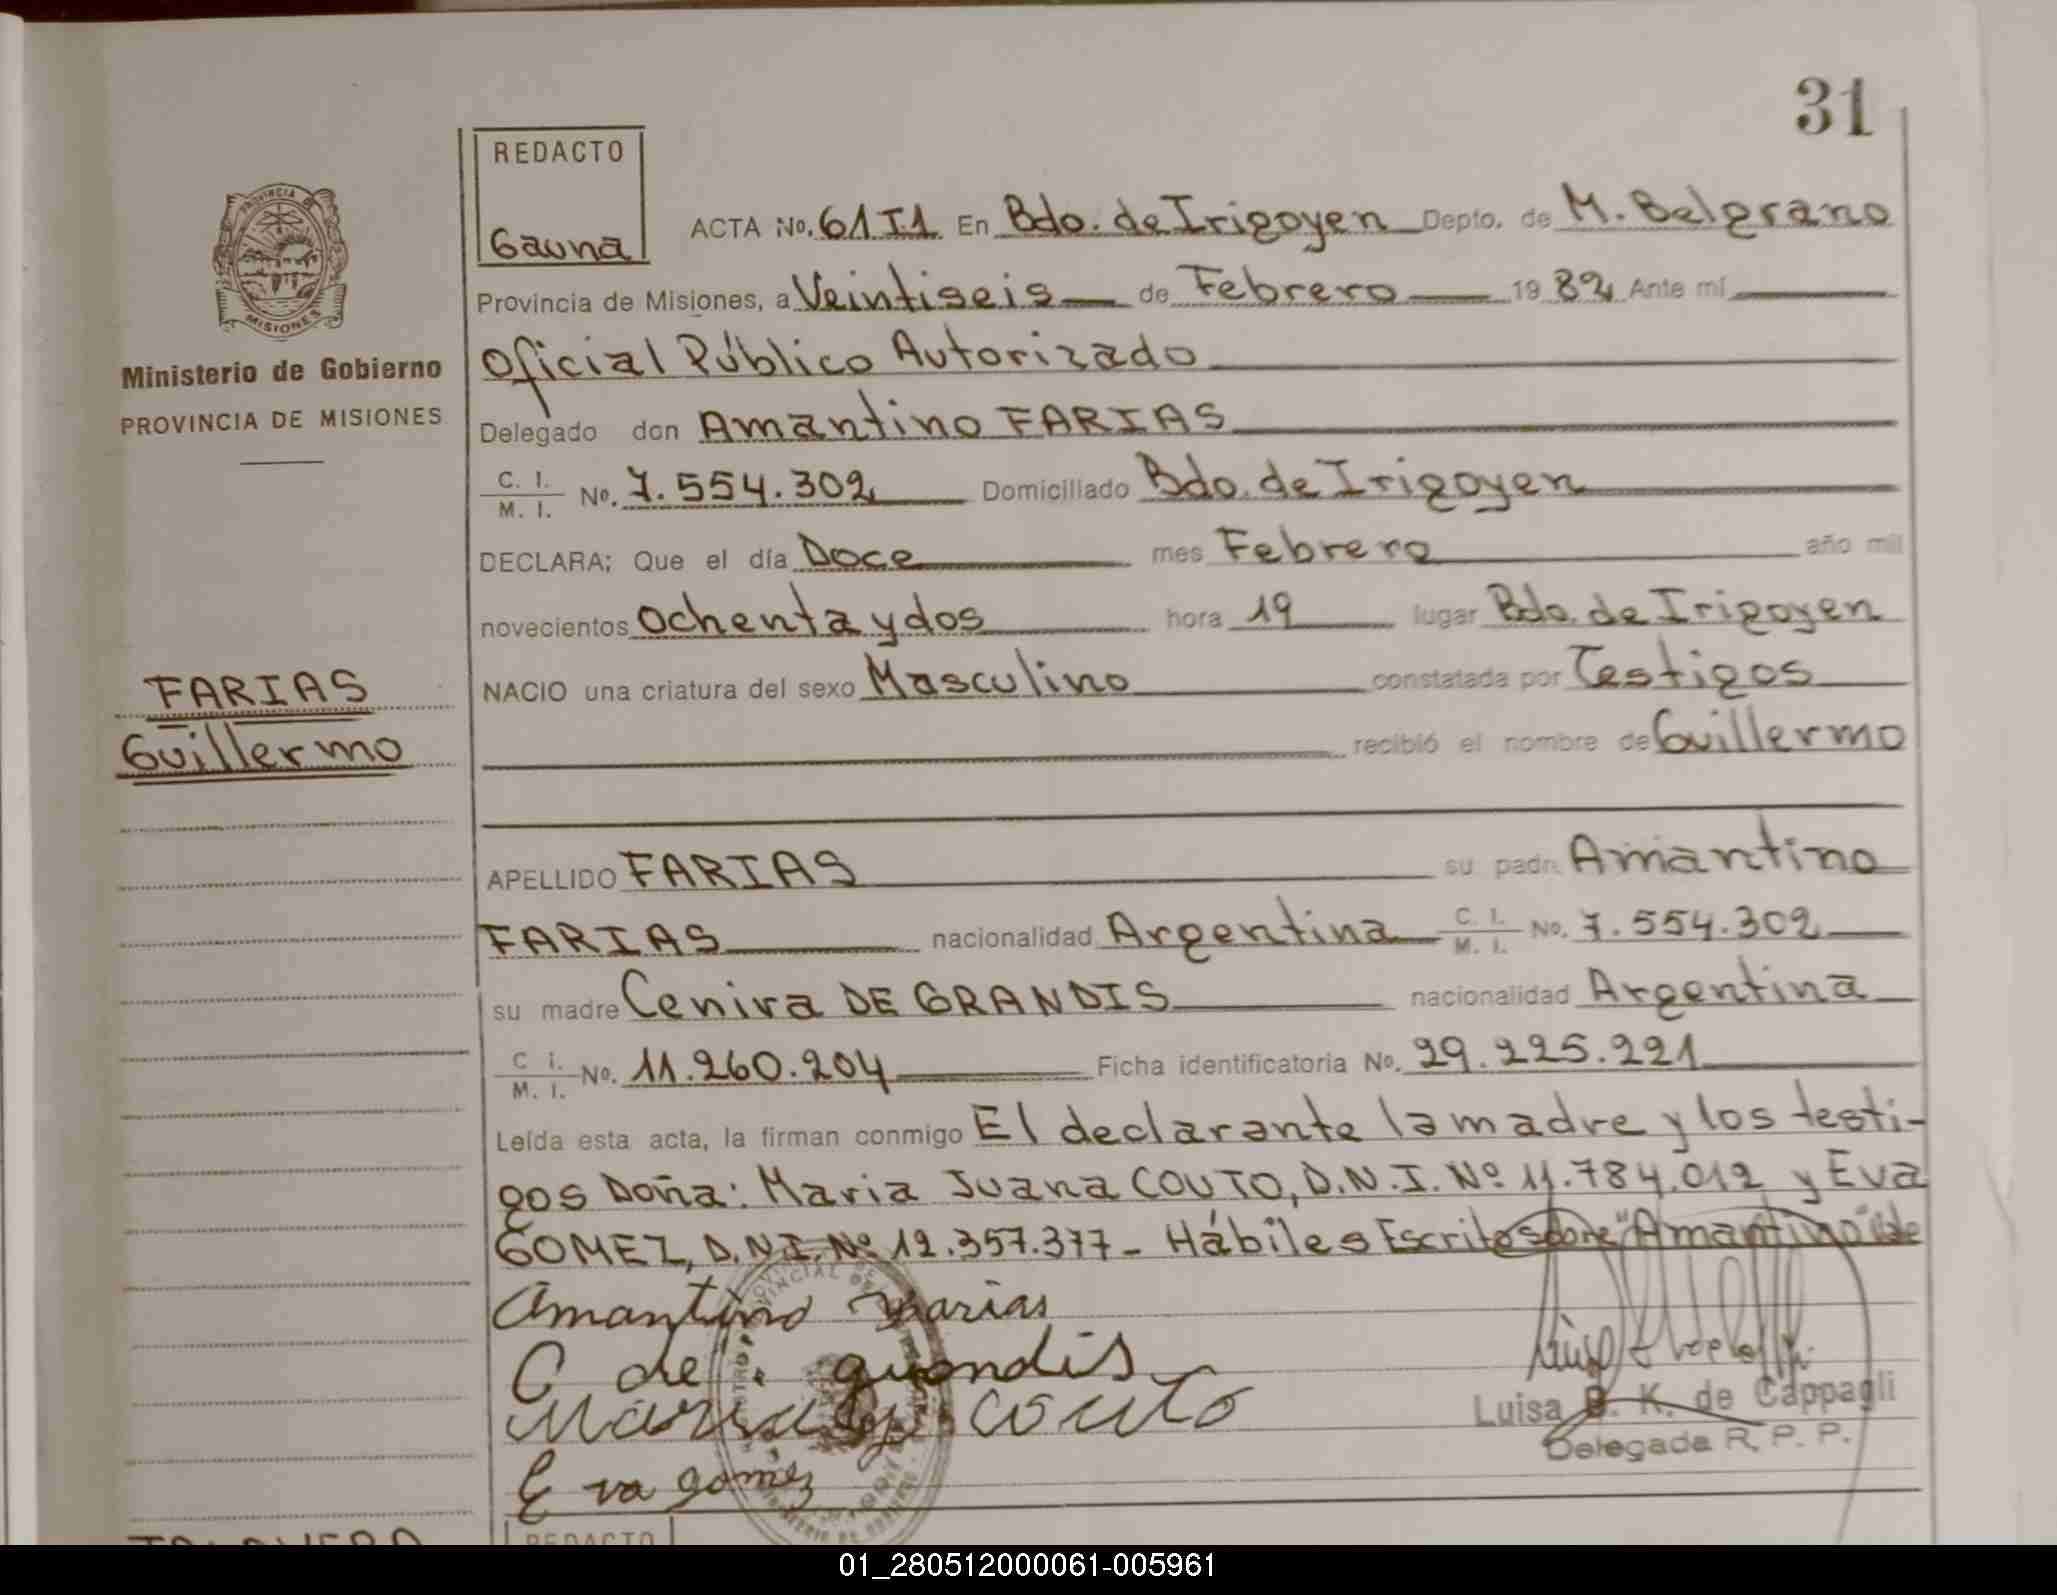 31
REDACTO
Gauna
ACTA No. 61 T1 En Bdo. de Irigoyen Depto. de M. Belgrano
Provincia de Misiones, a Veintiseis de Febrero 19 82 Ante mí
Oficial Público Autorizado
Delegado don Amantino FARIAS
C. I. / M. I. No. 7.554.302 Domiciliado Bdo. de Irigoyen
DECLARA; Que el día Doce mes Febrero año mil
novecientos Ochenta y dos hora 19 lugar Bdo. de Irigoyen
NACIO una criatura del sexo Masculino constatada por Testigos
recibió el nombre de Guillermo
APELLIDO FARIAS su padre Amantino
FARIAS nacionalidad Argentina C. I. / M. I. No. 7.554.302
su madre Cenira DE GRANDIS nacionalidad Argentina
C. I. / M. I. No. 11.260.204 Ficha identificatoria No. 29.225.221
Leída esta acta, la firman conmigo El declarante la madre y los testi-
gos Doña: Maria Juana COUTO, D.N.I. Nº 11.784.012 y Eva
GOMEZ, D.N.I. Nº 12.357.377 - Hábiles Escrito sobre "Amantino" Vale
Amantino Farias
C de grandis
Maria J. Couto
Eva gomez
Luisa B. K. de Cappagli
Delegada R. P. P.
PROVINCIA DE
MISIONES
Ministerio de Gobierno
PROVINCIA DE MISIONES
FARIAS
Guillermo
REDACTO
01_280512000061-005961